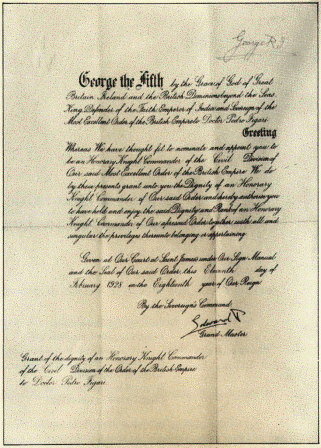 George R.I.
George the Fifth by the Grace of God of Great
Britain, Ireland and the British Dominions beyond the Seas,
King, Defender of the Faith, Emperor of India and Sovereign of the
Most Excellent Order of the British Empire to Doctor Pedro Figari
Greeting
Whereas We have thought fit to nominate and appoint you to
be an Honorary Knight Commander of the Civil Division of
Our said Most Excellent Order of the British Empire We do
by these presents grant unto you the Dignity of an Honorary
Knight Commander of Our said Order and hereby authorise you
to have hold and enjoy the said Dignity and Rank of an Honorary
Knight Commander of Our aforesaid Order together with all and
singular the privileges thereunto belonging or appertaining.
Given at Our Court at Saint James's under Our Sign Manual
and the Seal of Our said Order this Eleventh day of
February 1928 in the Eighteenth year of Our Reign
By the Sovereign's Command.
Edward P
Grand Master
Grant of the dignity of an Honorary Knight Commander
of the Civil Division of the Order of the British Empire
to Doctor Pedro Figari